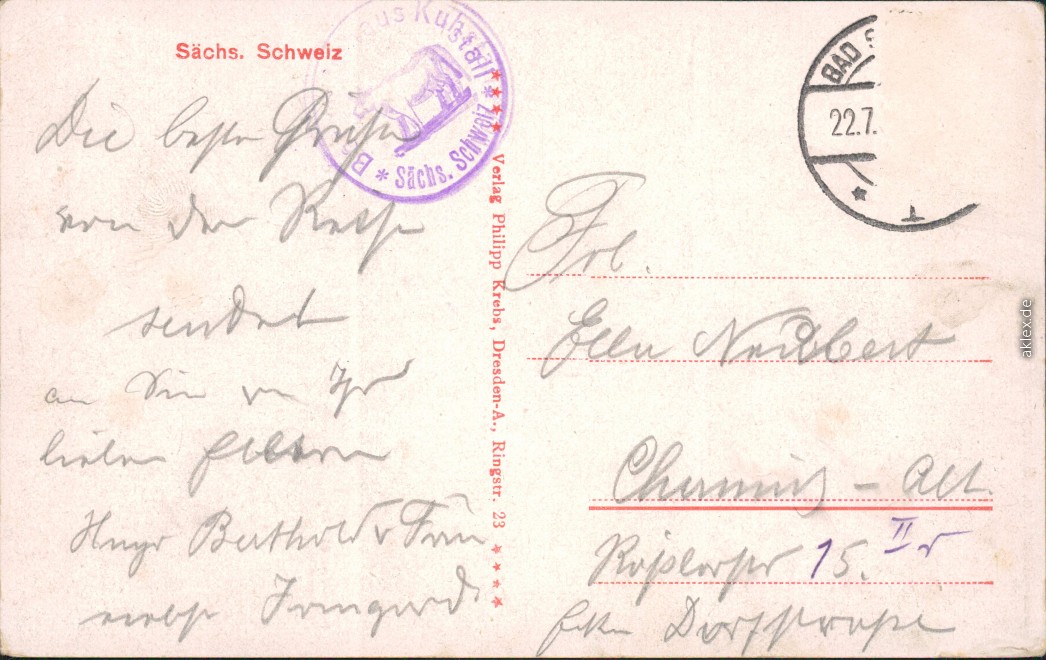 Sächs. Schweiz
Kuhstall
B * Sächs. Schweiz *
BAD S
22.7.
Die besten Grüße
von der Reise
sendet
an Sie u. Ihr
lieben Eltern
Hugo Berthold u Frau
nebst Irmgard
Verlag Philipp Krebs, Dresden-A., Ringstr. 23
Frl.
Ella Neubert
Chemnitz – Alt.
15. II r
Ecke Dorfstraße
aklex.de